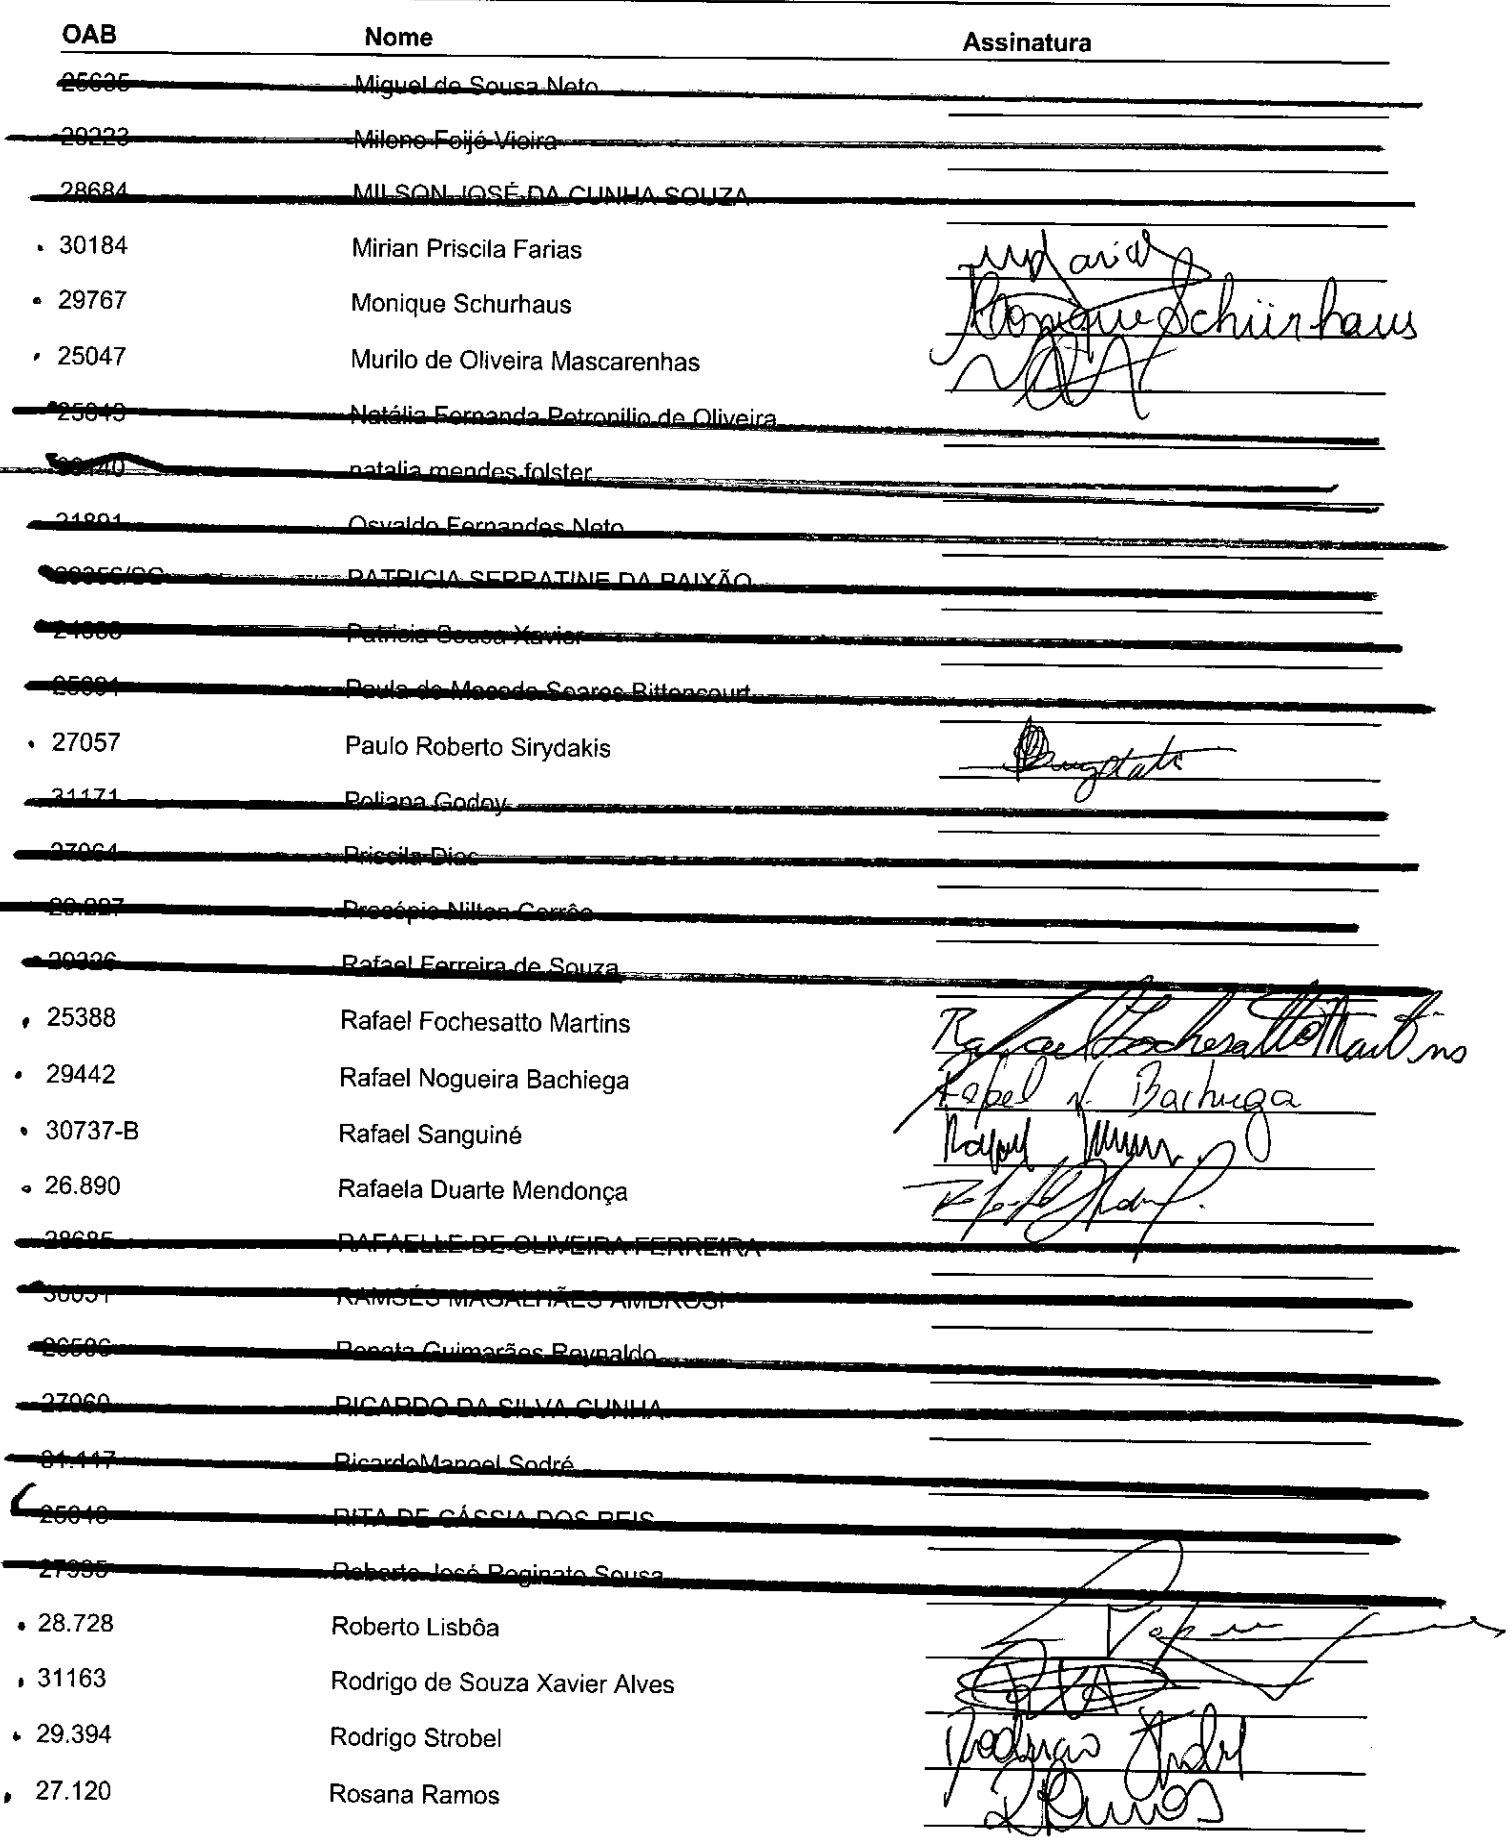 OAB Nome Assinatura
25635 Miguel de Sousa Neto
29223 Milene Feijó Vieira
28684 MILSON JOSÉ DA CUNHA SOUZA
30184 Mirian Priscila Farias
29767 Monique Schurhaus Monique Schürhaus
25047 Murilo de Oliveira Mascarenhas
25843 Natália Fernanda Petronilio de Oliveira
natalia mendes folster
21891 Osvaldo Fernandes Neto
PATRICIA SERRATINE DA PAIXÃO
Patricia Sousa Xavier
Paula de Macedo Soares Bittencourt
27057 Paulo Roberto Sirydakis
31171 Poliana Godoy
27064 Priscila Dias
Procópio Nilton Corrêa
29326 Rafael Ferreira de Souza
25388 Rafael Fochesatto Martins Rafael Fochesatto Martins
29442 Rafael Nogueira Bachiega Rafael N. Bachiega
30737-B Rafael Sanguiné Rafael
26.890 Rafaela Duarte Mendonça
28685 RAFAELLE DE OLIVEIRA FERREIRA
RAMSÉS MAGALHÃES AMBROSI
26596 Renata Guimarães Reynaldo
27960 RICARDO DA SILVA CUNHA
31.117 RicardoManoel Sodré
RITA DE CÁSSIA DOS REIS
27935 Roberto José Reginato Sousa
28.728 Roberto Lisbôa
31163 Rodrigo de Souza Xavier Alves
29.394 Rodrigo Strobel Rodrigo Strobel
27.120 Rosana Ramos RRamos